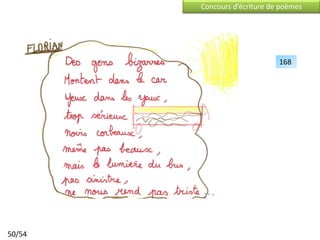 Concours d'écriture de poèmes
168
FLORIAN
Des gens bizarres
Montent dans le car
Yeux dans les yeux,
trop sérieux
noirs corbeaux,
même pas beaux,
mais la lumiere du bus,
pas sinistre,
ne nous rend pas triste...
50/54